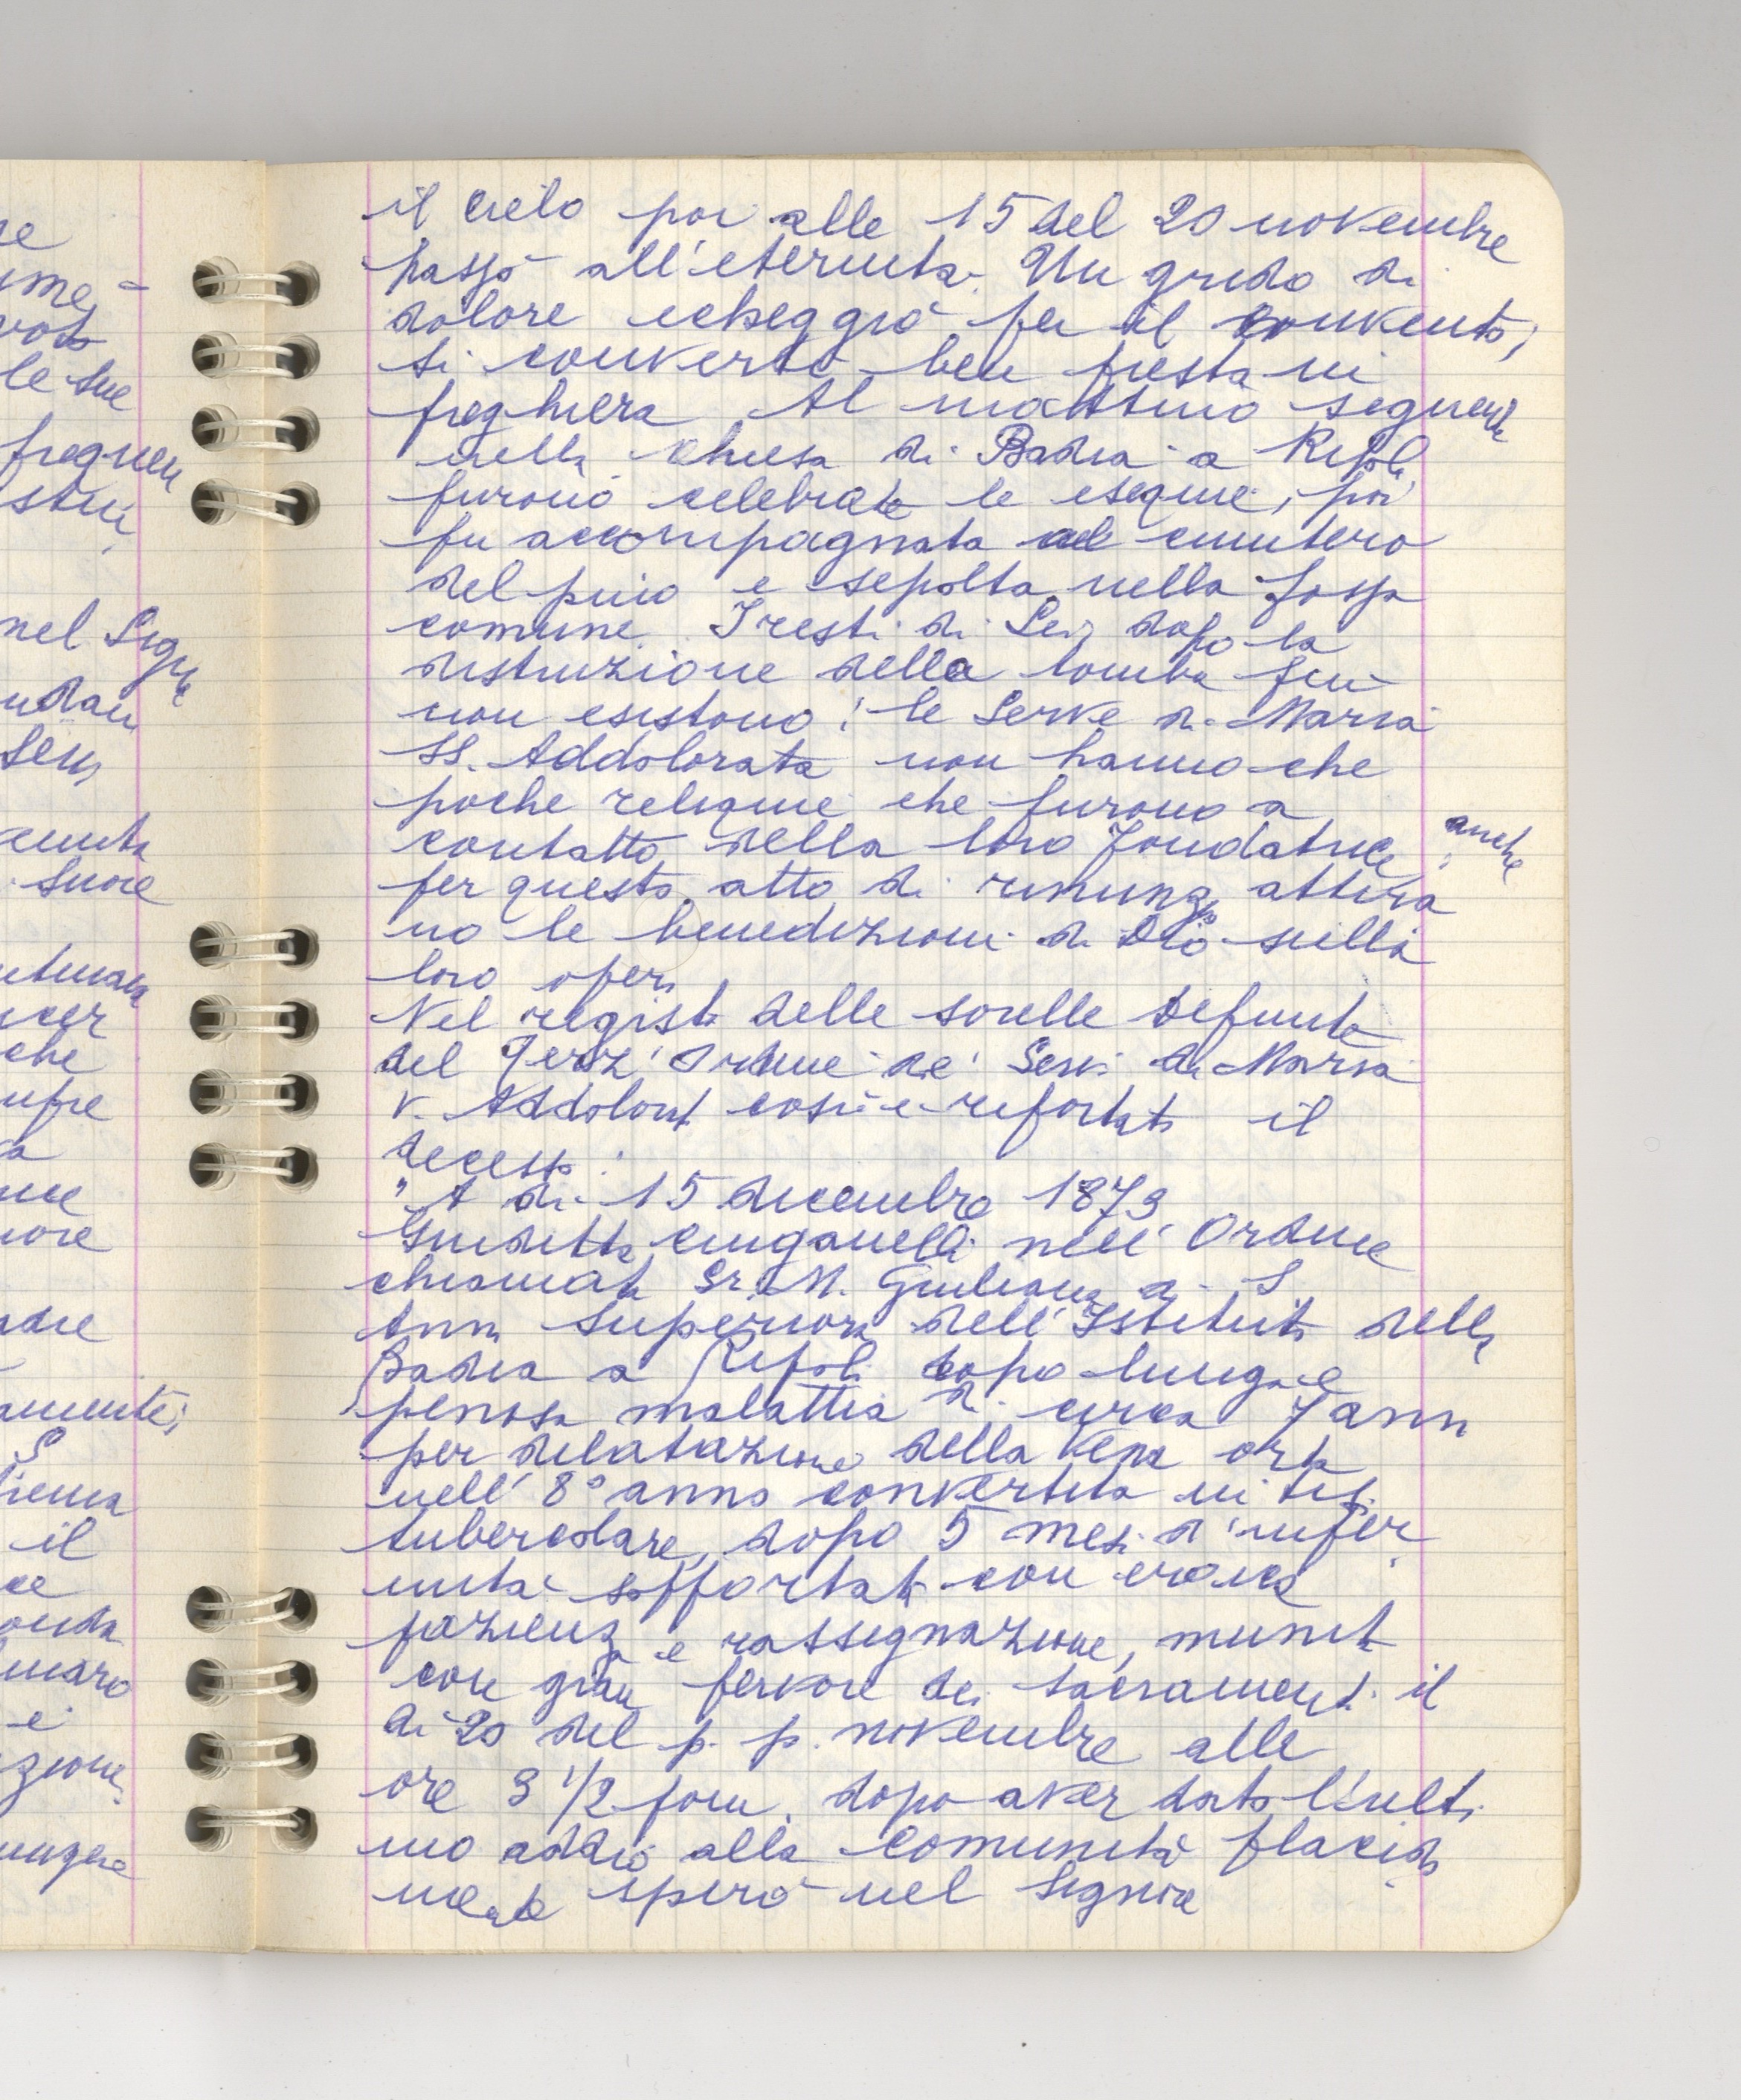 il cielo poi alle 15 del 20 novembre
passò all'eternità. Un grido di
dolore echeggiò per il convento,
si convertò ben presto in
preghiera. Al mattino seguente
nella Chiesa di Badia a Ripoli
furono celebrate le esequie, poi
fu accompagnata al cimitero
del pino e sepolta nella fossa
comune. I resti di Lei, dopo la
distruzione della tomba
non esistono; le Serve di Maria
SS. Addolorata non hanno che
poche reliquie che furono a
contatto della loro Fondatrice, anche
per questo atto di rinunzia attira
no le benedizioni di Dio sulla
loro opera
Nel registro delle sorelle Defunte
del Terz'Ordine de' Servi di Maria
V. Addolorat così è riportato il
decesso:
"A dì 15 dicembre 1873
Giuditta Cinganelli nell'Ordine
chiamata Sr. M. Giuliana di S
Anna Superiora dell'Istituto della
Badia a Ripoli dopo lunga e
penosa malattia di circa 7 anni
per dilatazione della vena orta
nell'8° anno convertita in tisi
tubercolare, dopo 5 mesi d'infer
mità soffortata con eroica
pazienza e rassegnazione, munita
con gran fervore dei sacramenti il
dì 20 del p. p. novembre alle
ore 3 1/2 pom. dopo aver dato l'ulti
mo addio alla Comunità placida
mente spirò nel Signore